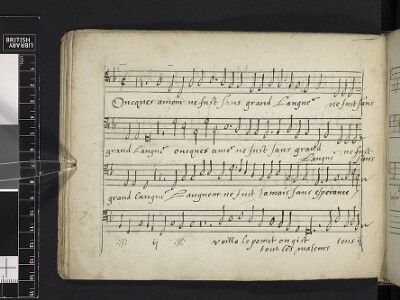 Oncques amour ne fust sans grand Langue ne fust sans
grand Langue oncques amo ne fust sans grand Langue ne fust sans
grand langue Langueur ne fust Jamais sans esperance
voilla le poinct ou gist tous
tout les maleurs
BRITISH
LIBRARY